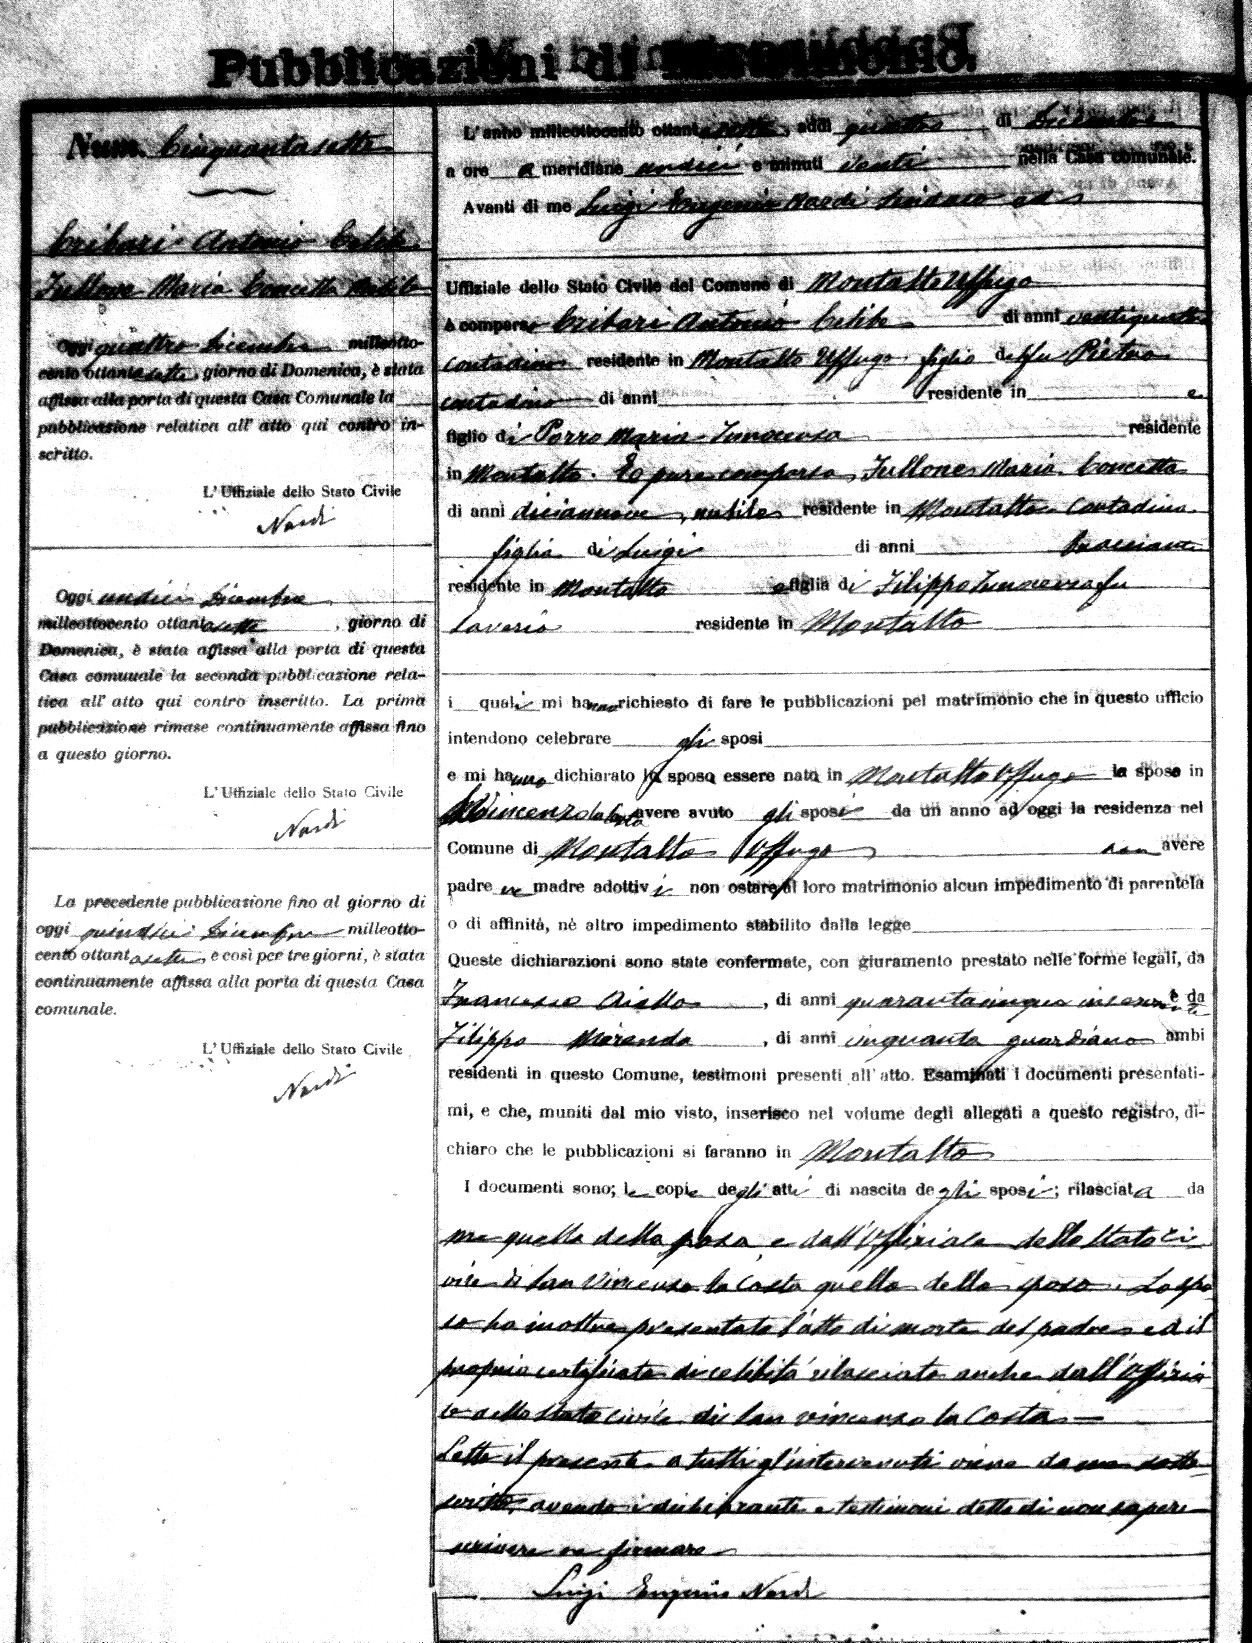 Pubblicazioni di Matrimonio.
Num. Cinquantasette
Cribari Antonio Celibe
Fullone Maria Concetta nubile
Oggi quattro Dicembre milleotto-
cento ottantasette, giorno di Domenica, è stata
affissa alla porta di questa Casa Comunale la
pubblicazione relativa all' atto qui contro in-
scritto.
L' Uffiziale dello Stato Civile
Nardi
Oggi undici Dicembre
milleottocento ottantasette, giorno di
Domenica, è stata affissa alla porta di questa
Casa comunale la seconda pubblicazione rela-
tiva all' atto qui contro inscritto. La prima
pubblicazione rimase continuamente affissa fino
a questo giorno.
L' Uffiziale dello Stato Civile
Nardi
La precedente pubblicazione fino al giorno di
oggi quindici Dicembre milleotto-
cento ottantasette e così per tre giorni, è stata
continuamente affissa alla porta di questa Casa
comunale.
L' Uffiziale dello Stato Civile
Nardi
L' anno milleottocento ottantasette, addì quattro di Dicembre
a ore a meridiane undici e minuti venti nella Casa comunale.
Avanti di me Luigi Eugenio Nardi Sindaco ed
Uffiziale dello Stato Civile del Comune di Montalto Uffugo
è comparso Cribari Antonio Celibe di anni ventiquattro
contadino residente in Montalto Uffugo figlio del fu Pietro
contadino di anni residente in e
figlio di Porro Maria Innocenza residente
in Montalto. E pure comparsa, Fullone Maria Concetta
di anni diciannove, nubile residente in Montalto Contadina
figlia di Luigi di anni bracciante
residente in Montalto e figlia di Filippo Innocenza fu
Saverio residente in Montalto
i quali mi hanno richiesto di fare le pubblicazioni pel matrimonio che in questo ufficio
intendono celebrare gli sposi
e mi hanno dichiarato lo sposo essere nato in Montalto Uffugo la sposa in
S. Vincenzo la Costa avere avuto gli sposi da un anno ad oggi la residenza nel
Comune di Montalto Uffugo non avere
padre ne madre adottivi non ostare al loro matrimonio alcun impedimento di parentela
o di affinità, nè altro impedimento stabilito dalla legge
Queste dichiarazioni sono state confermate, con giuramento prestato nelle forme legali, da
Francesco Aiello, di anni quarantacinque inserviente e da
Filippo Miranda, di anni cinquanta guardiano ambi
residenti in questo Comune, testimoni presenti all' atto. Esaminati i documenti presentati-
mi, e che, muniti dal mio visto, inserisco nel volume degli allegati a questo registro, di-
chiaro che le pubblicazioni si faranno in Montalto
I documenti sono; le copie degli atti di nascita degli sposi; rilasciata da
me quella della sposa e dall'Uffiziale dello Stato ci
vile di San Vincenzo la Costa quella dello sposo. Lo spo
so ha inoltre presentato l'atto di morte del padre ed il
proprio certificato di celibità rilasciato anche dall'Uffizia
le dello Stato civile di San Vincenzo la Costa
Letto il presente a tutti gl'intervenuti viene da me sotto
scritto, avendo i dichiaranti e testimoni detto di non sapere
scrivere ne firmare
Luigi Eugenio Nardi